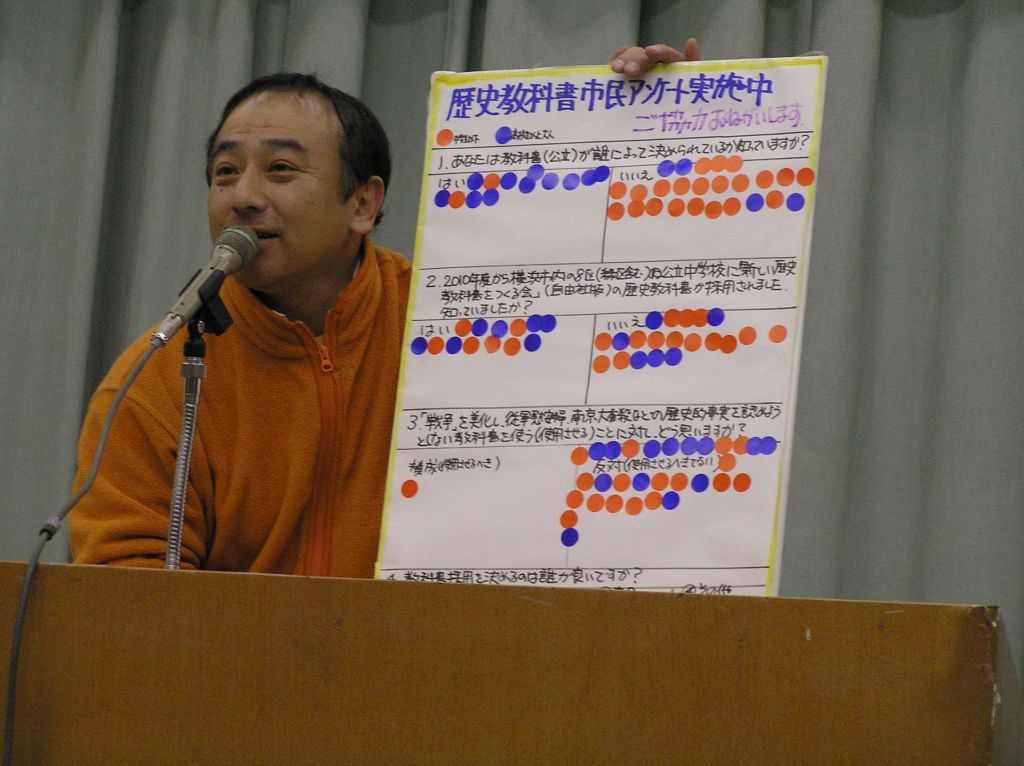 歴史教科書市民アンケート実施中
ご協力おねがいします
中学生以下 高校生以上大人
1. あなたは教科書(公立)が誰によって決められているか知っていますか?
はい いいえ
2. 2010年度から横浜市内の8区(緑区含む)の公立中学校に「新しい歴史
教科書をつくる会」(自由社版)の歴史教科書が採用されました。
知っていましたか?
はい いいえ
3.「戦争」を美化し、従軍慰安婦、南京大虐殺などの歴史的事実を認めよう
としない教科書を使う(使用させる)ことに対し、どう思いますか?
賛成(使用させるべき) 反対(使用させるべきでない)
4. 教科書採用を決めるのは誰が良いですか?